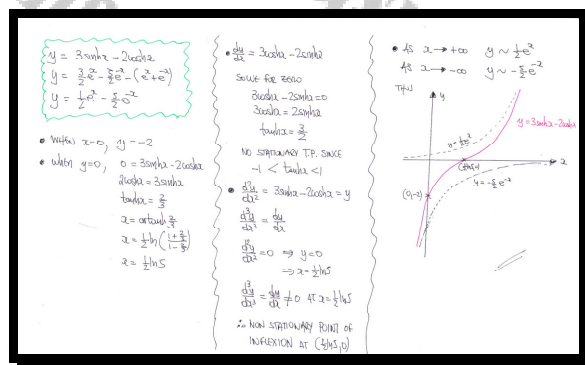 y = 3sinhx - 2coshx
y = 3/2 e^x - 3/2 e^-x - (e^x + e^-x)
y = 1/2 e^x - 5/2 e^-x
• WHEN x=0, y = -2
• WHEN y=0, 0 = 3sinhx - 2coshx
2coshx = 3sinhx
tanhx = 2/3
x = artanh 2/3
x = 1/2 ln( (1 + 2/3) / (1 - 2/3) )
x = 1/2 ln5
• dy/dx = 3coshx - 2sinhx
SOLVE FOR ZERO
3coshx - 2sinhx = 0
3coshx = 2sinhx
tanhx = 3/2
NO STATIONARY T.P. SINCE
-1 < tanhx < 1
• d²y/dx² = 3sinhx - 2coshx = y
d³y/dx³ = dy/dx
d²y/dx² = 0 ⇒ y=0
⇒ x = 1/2 ln5
d³y/dx³ = dy/dx ≠ 0 AT x = 1/2 ln5
∴ NON STATIONARY POINT OF
INFLEXION AT (1/2 ln5, 0)
• AS x → +∞ y ~ 1/2 e^x
AS x → -∞ y ~ -5/2 e^-x
THUS
y
y = 3sinhx - 2coshx
y = 1/2 e^x
x
(0,-2)
y = -5/2 e^-x